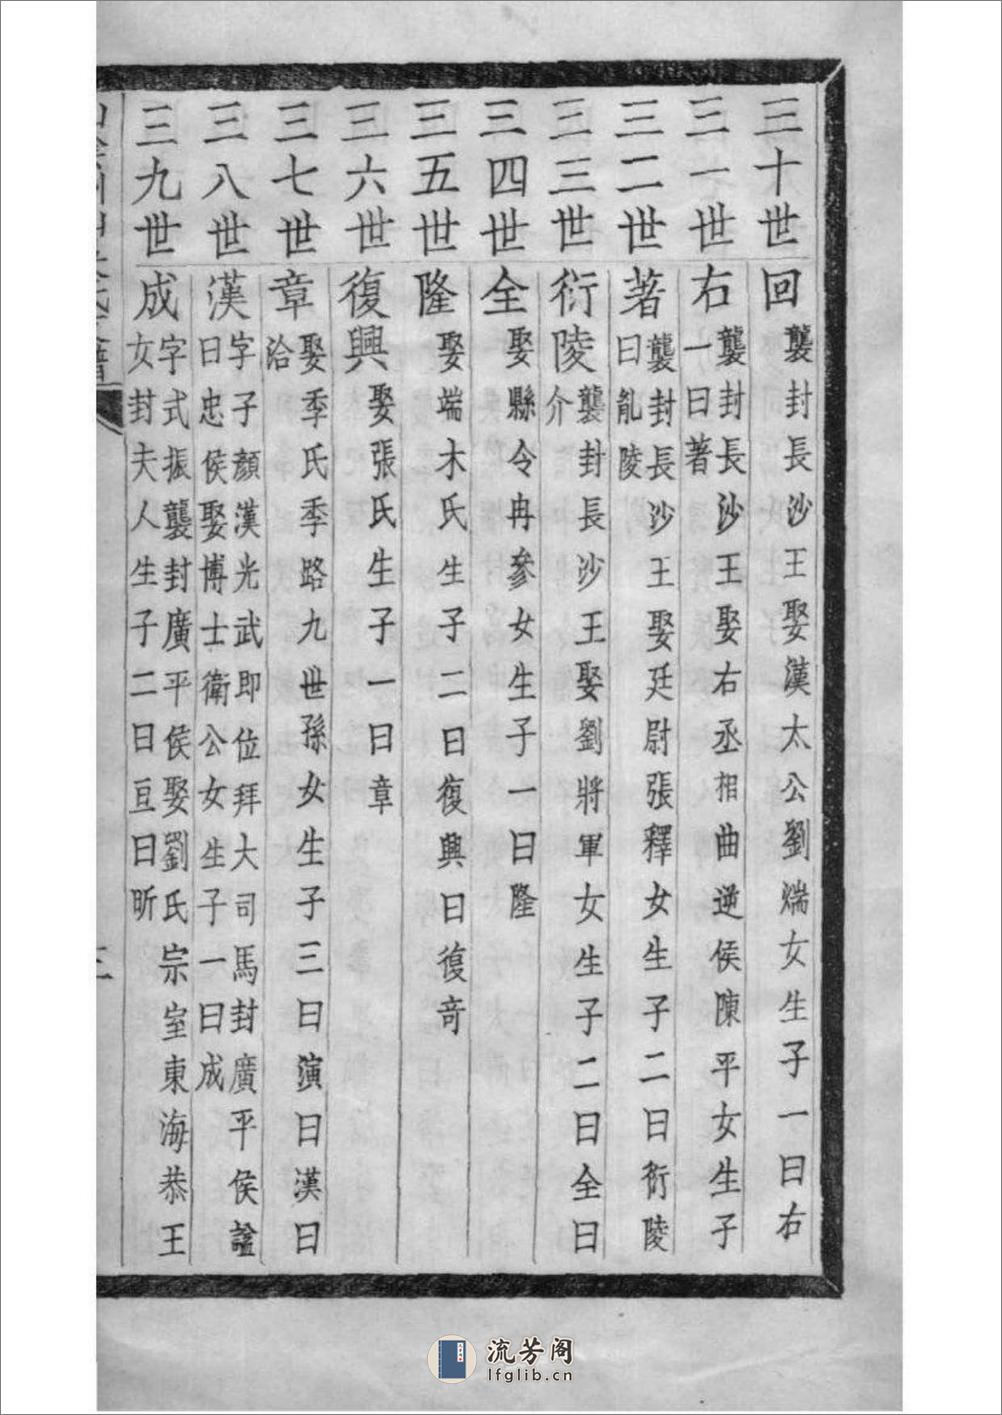 三十世 回 襲封長沙王娶漢太公劉煓女生子一曰右
三一世 右 襲封長沙王娶右丞相曲逆侯陳平女生子
一曰著
三二世 著 襲封長沙王娶廷尉張釋女生子二曰衍陵
曰亂陵
三三世 衍陵 襲封長沙王娶劉將軍女生子二曰全曰
介
三四世 全 娶縣令冉參女生子一曰隆
三五世 隆 娶端木氏生子二曰復興曰復奇
三六世 復興 娶張氏生子一曰章
三七世 章 娶季氏季路九世孫女生子三曰演曰漢曰
洽
三八世 漢 字子顏漢光武即位拜大司馬封廣平侯謚
曰忠侯娶博士衛公女生子一曰成
三九世 成 字式振襲封廣平侯娶劉氏宗室東海恭王
女封夫人生子二曰亘曰昕
流芳阁
lfglib.cn